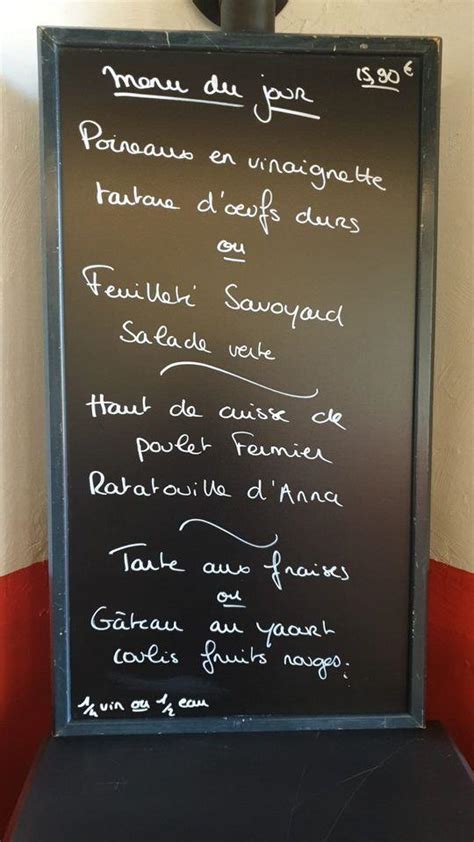 Menu du jour 15,90 €
Poireaux en vinaigrette
tartare d'œufs durs
ou
Feuilleté Savoyard
Salade verte
Haut de cuisse de
poulet Fermier
Ratatouille d'Anna
Tarte aux fraises
ou
Gâteau au yaourt
coulis fruits rouges.
1/4 vin ou 1/2 eau